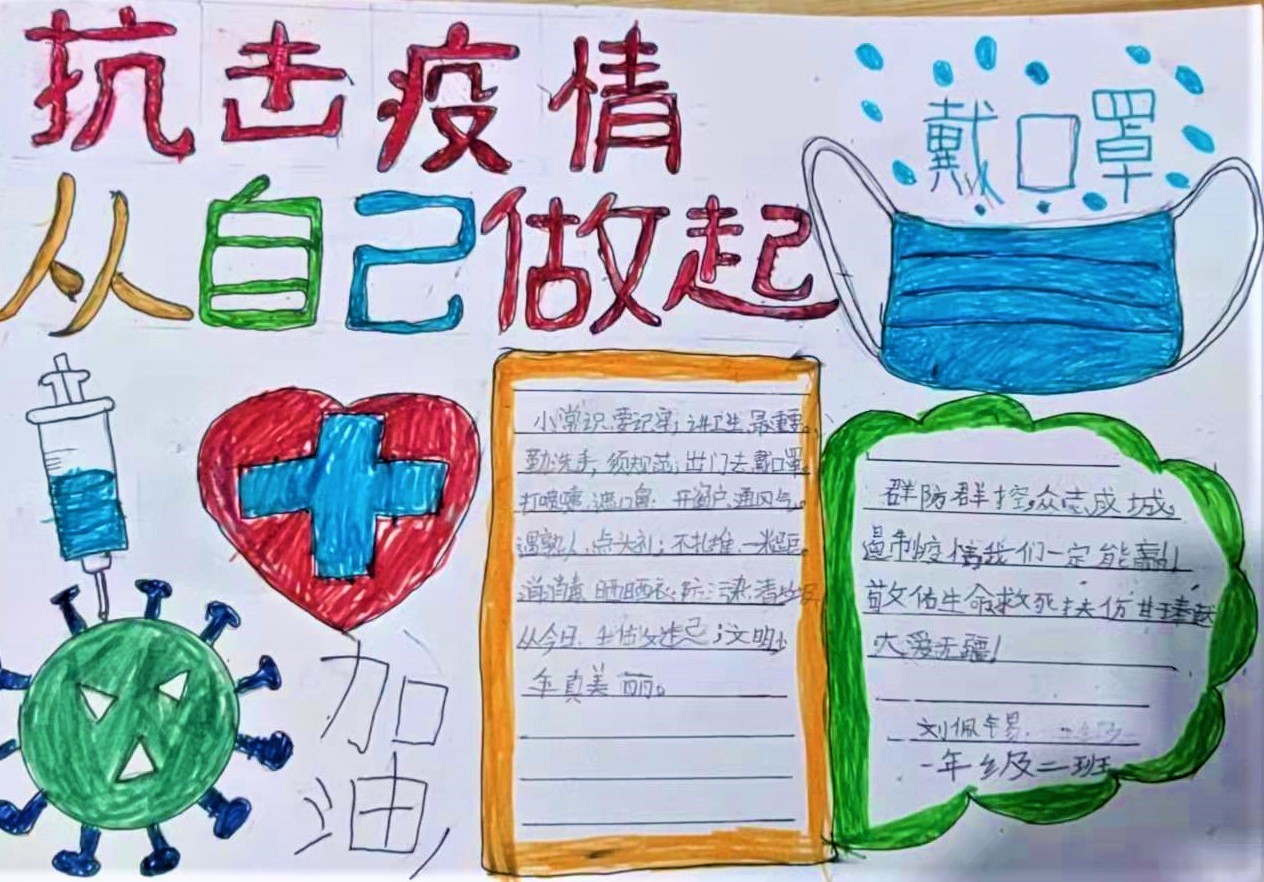 抗击疫情
从自己做起
戴口罩
小常识,要记牢;讲卫生,最重要。
勤洗手,须规范;出门去,戴口罩。
打喷嚏,遮口鼻;开窗户,通风气。
遇熟人,点头礼;不扎堆,一米距。
消消毒,晒晒衣;防污染,清垃圾
从今日,
文明少
年真美丽。
群防群控,众志成城。
遏制疫情我们一定能赢!
敬佑生命救死扶伤甘于奉献
大爱无疆!
刘佩
一年级二班
加
油